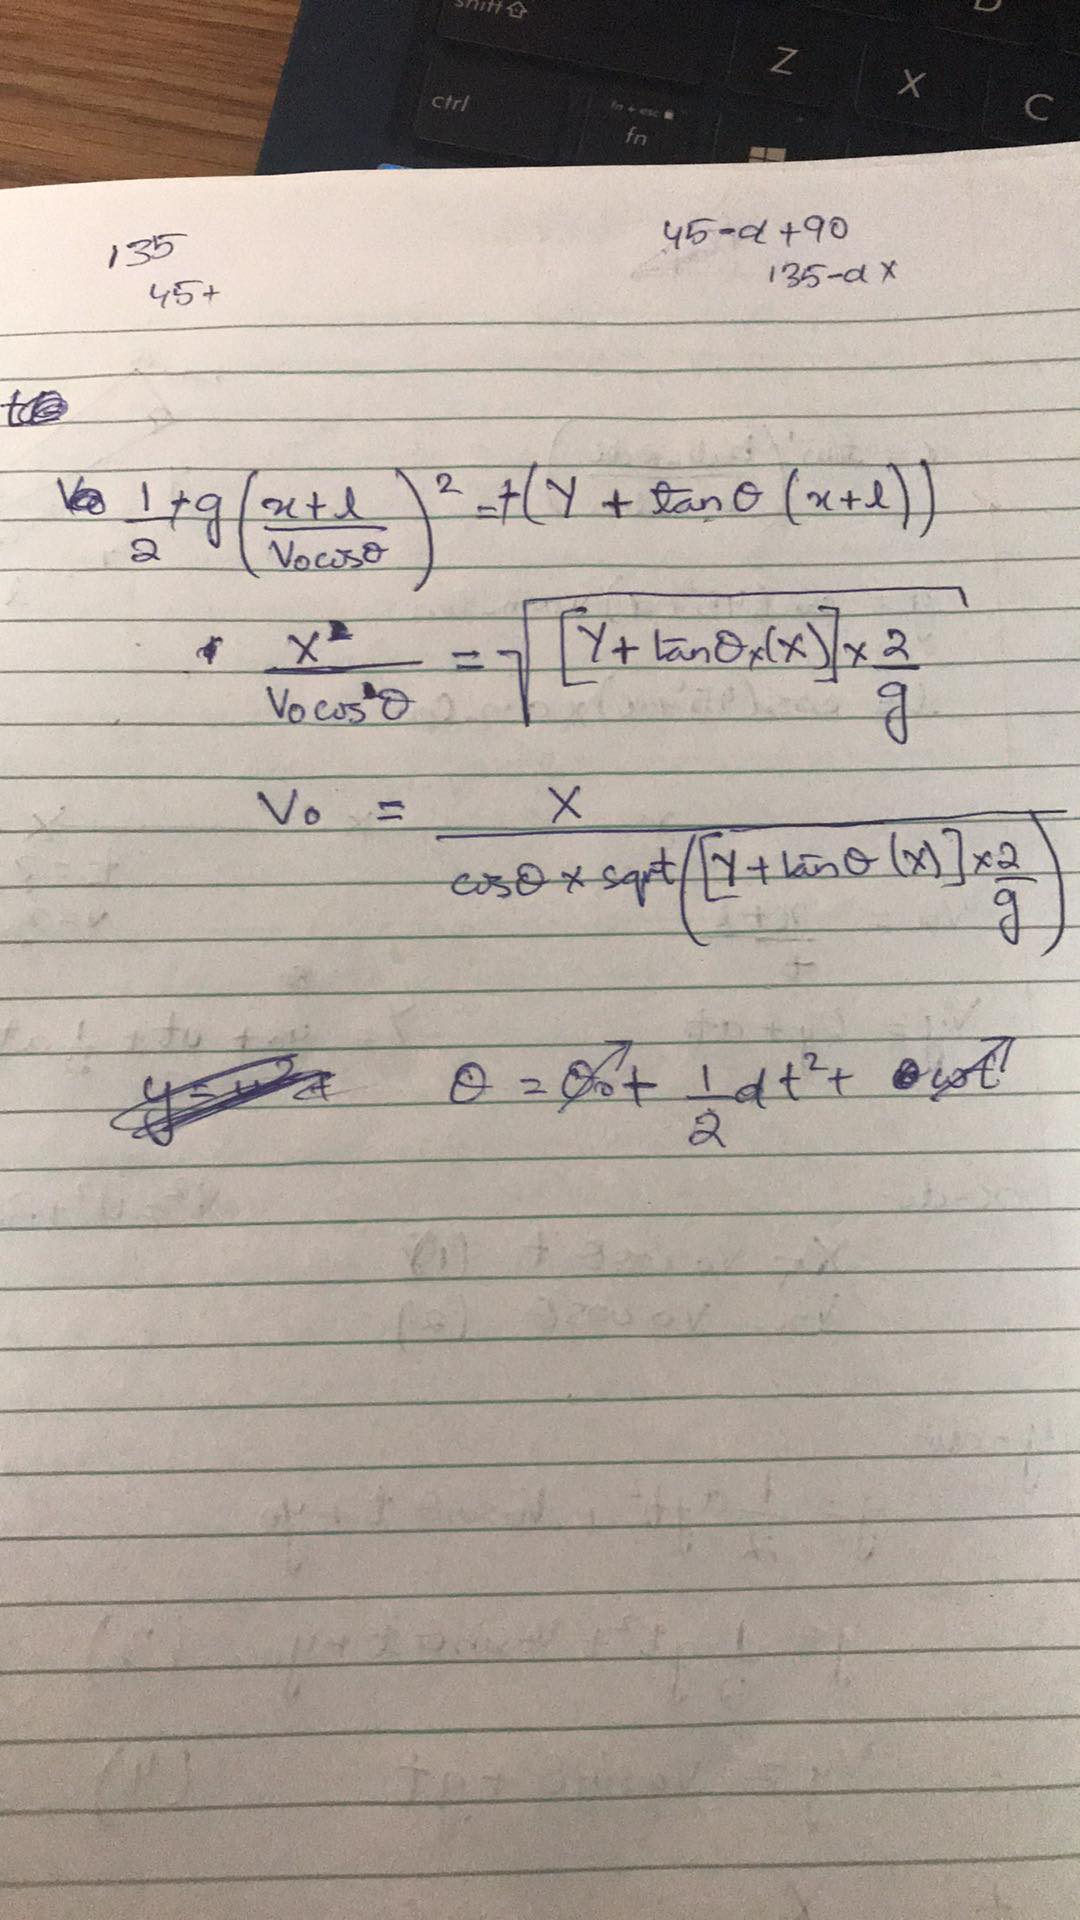 shift
D
Z
X
C
ctrl
fn + esc
fn
135
45+
45-α+90
135-α x
1/2 +g ((x+l)/(V₀cosθ))² = +(Y + tanθ (x+l))
X/(V₀cosθ) = √([Y+tanθ×(X)]×2/g)
V₀ = X/(cosθ × sqrt([Y+tanθ(X)]×2/g))
θ = θ₀ + 1/2 αt² + ωt